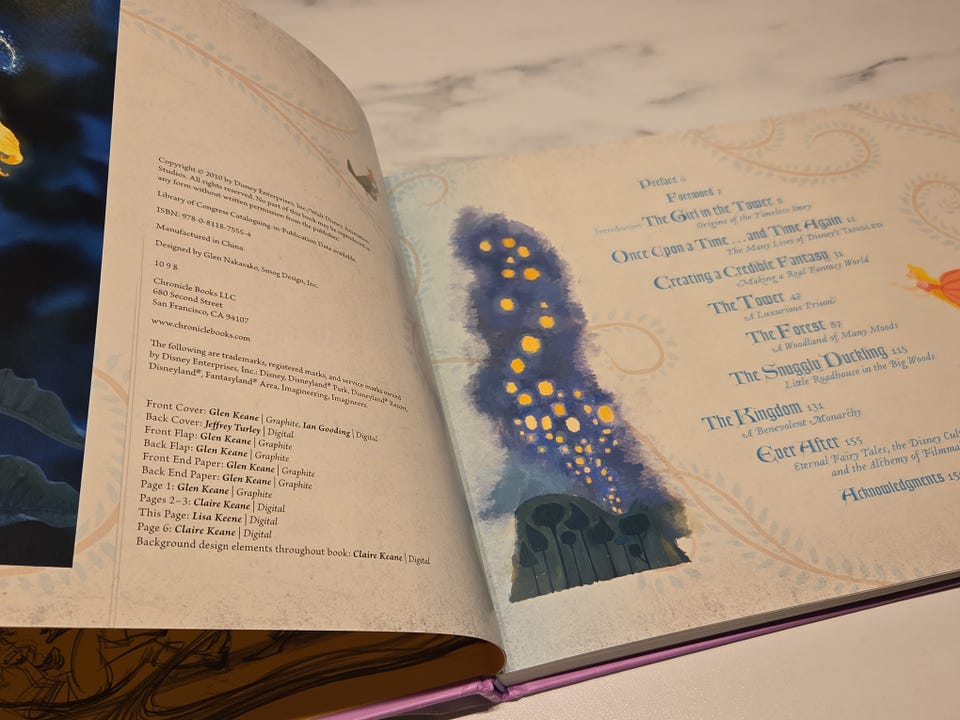 Copyright © 2010 by Disney Enterprises, Inc./Walt Disney Animation
Studios. All rights reserved. No part of this book may be reproduced in
any form without written permission from the publisher.
Library of Congress Cataloguing-in-Publication Data available.
ISBN: 978-0-8118-7555-4
Manufactured in China.
Designed by Glen Nakasako, Smog Design, Inc.
10 9 8
Chronicle Books LLC
680 Second Street
San Francisco, CA 94107
www.chroniclebooks.com
The following are trademarks, registered marks, and service marks owned
by Disney Enterprises, Inc.: Disney, Disneyland® Park, Disneyland® Resort,
Disneyland®, Fantasyland® Area, Imagineering, Imagineers.
Front Cover: Glen Keane | Graphite, Ian Gooding | Digital
Back Cover: Jeffrey Turley | Digital
Front Flap: Glen Keane | Graphite
Back Flap: Glen Keane | Graphite
Front End Paper: Glen Keane | Graphite
Back End Paper: Glen Keane | Graphite
Page 1: Glen Keane | Graphite
Pages 2–3: Claire Keane | Digital
This Page: Lisa Keene | Digital
Page 6: Claire Keane | Digital
Background design elements throughout book: Claire Keane | Digital
Preface 6
Foreword 7
Introduction: The Girl in the Tower 8
Origins of the Timeless Story
Once Upon a Time . . . and Time Again 11
The Many Lives of Disney's TANGLED
Creating a Credible Fantasy 31
Making a Real Fantasy World
The Tower 47
A Luxurious Prison
The Forest 87
A Woodland of Many Moods
The Snuggly Duckling 115
Little Roadhouse in the Big Woods
The Kingdom 131
A Benevolent Monarchy
Ever After 155
Eternal Fairy Tales, the Disney Cul
and the Alchemy of Filmma
Acknowledgments 15